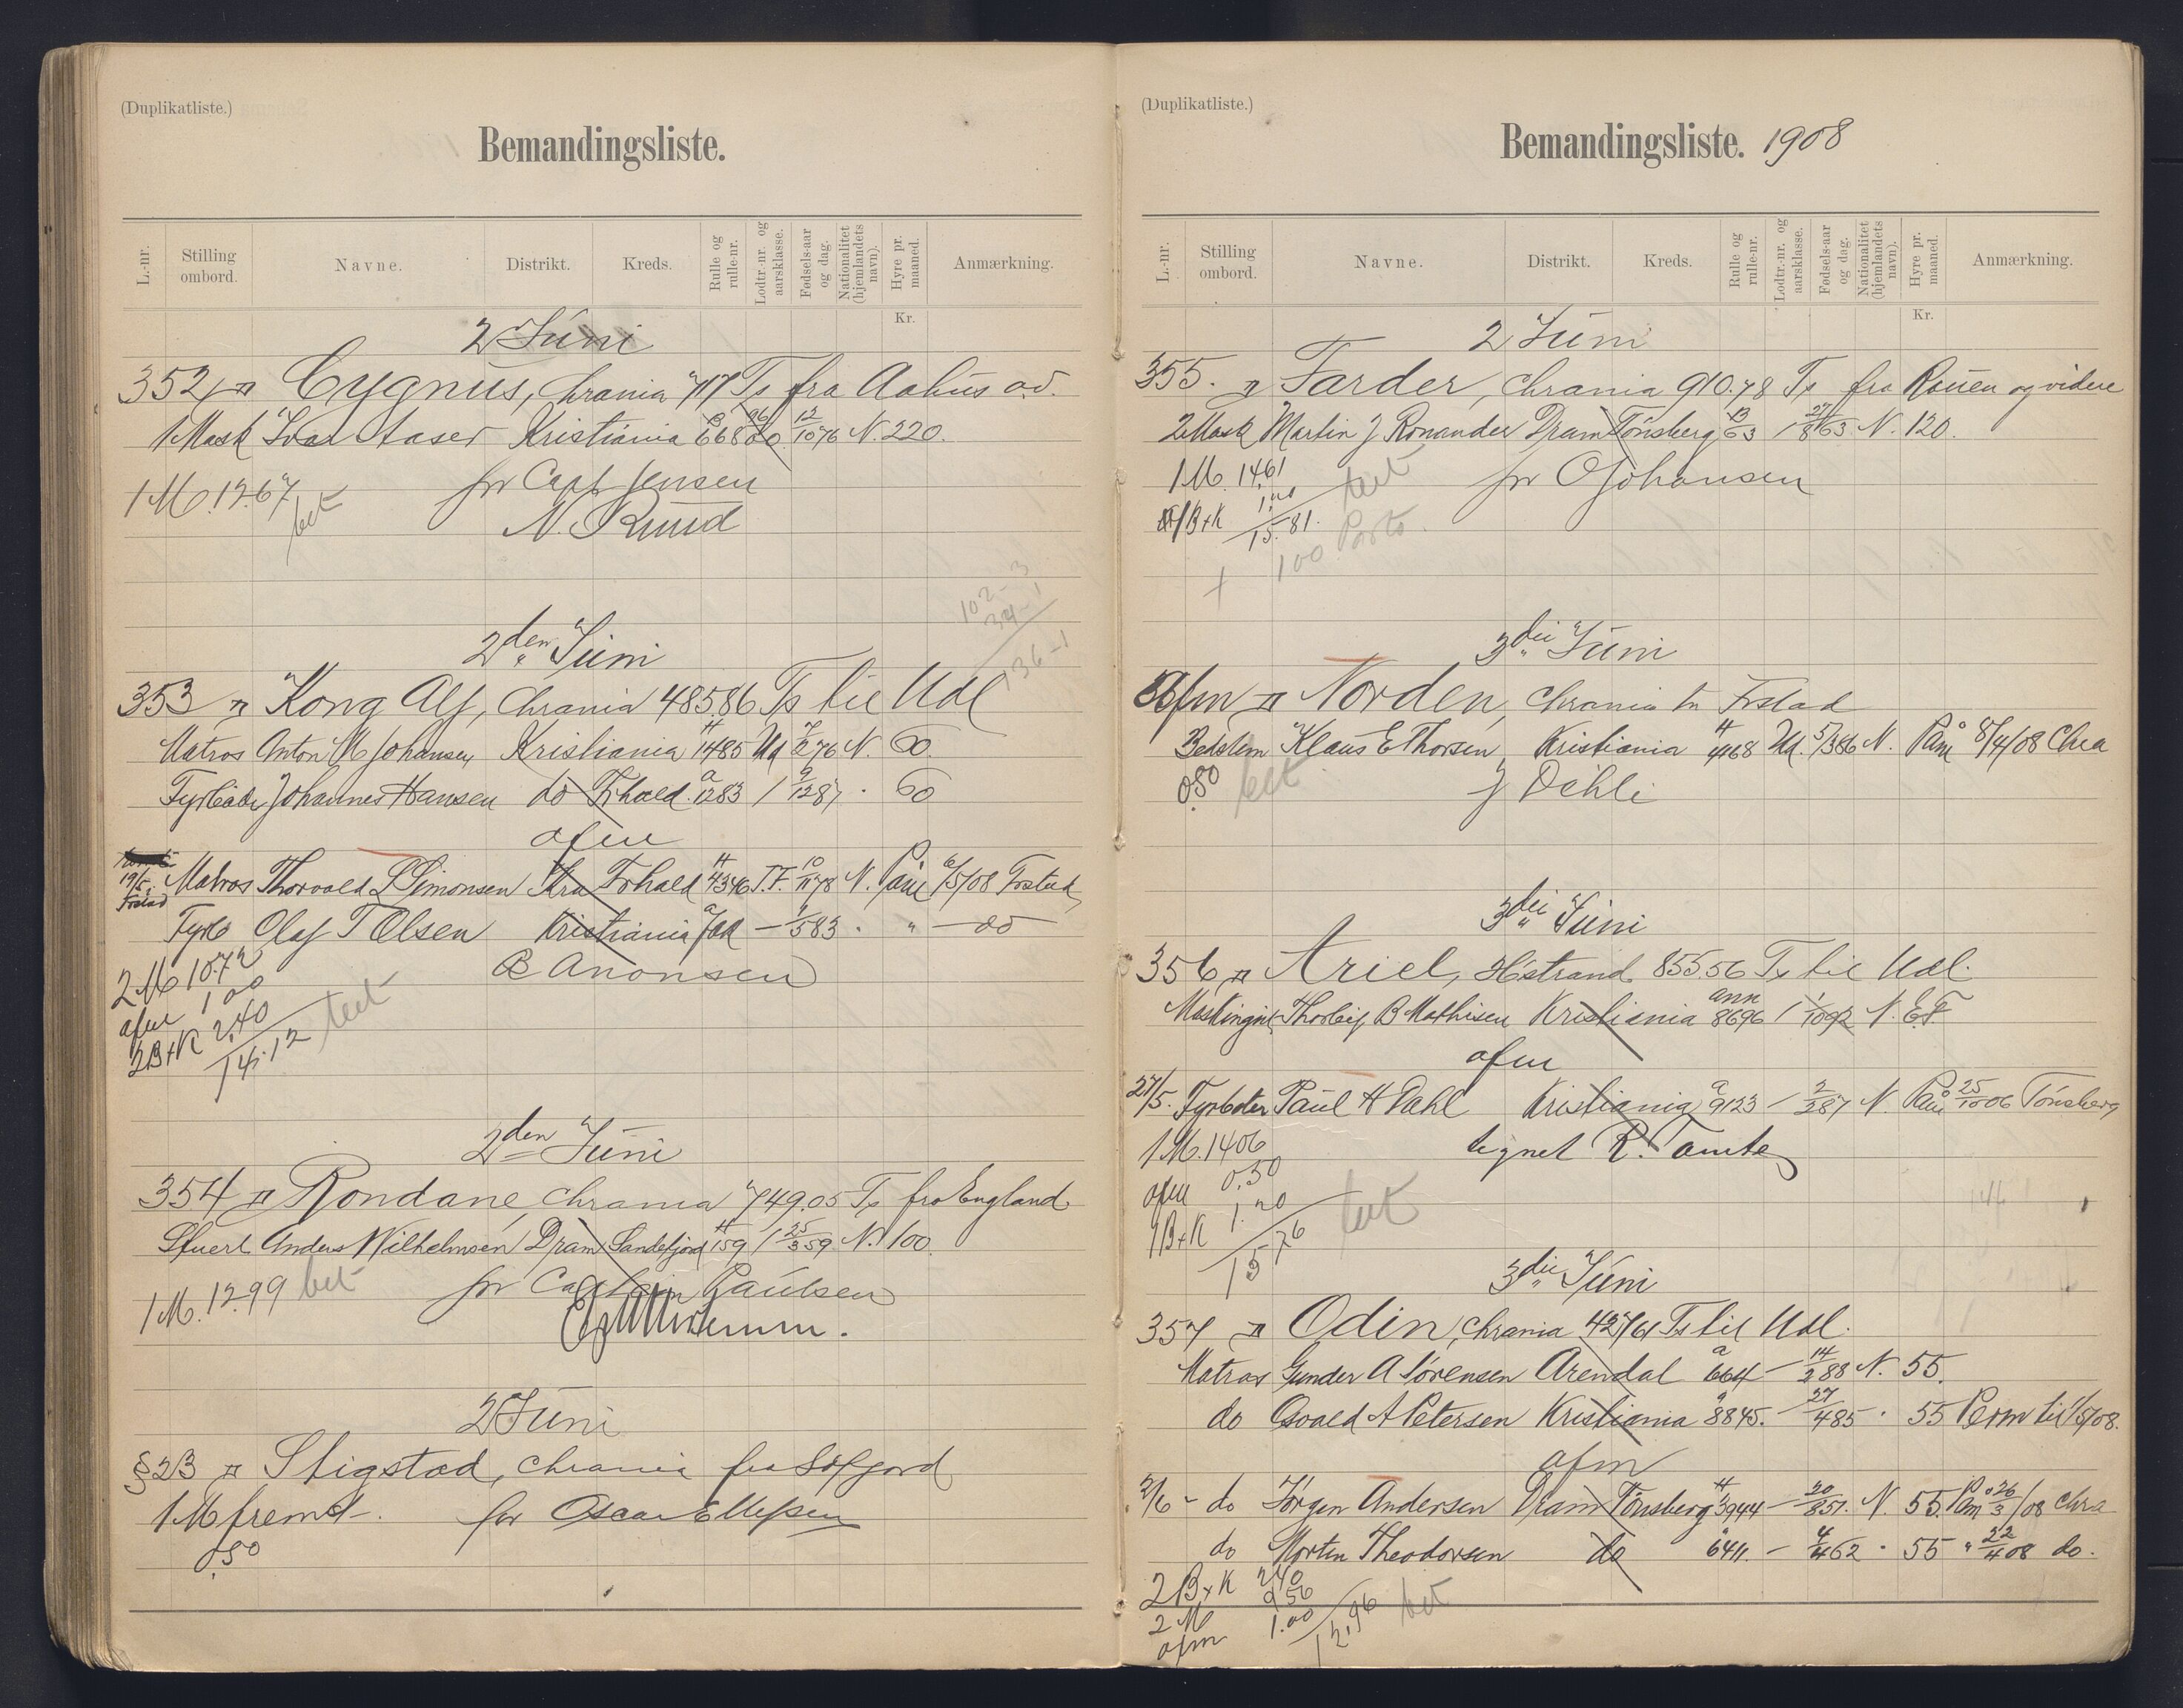 (Duplikatliste.)
Bemandingsliste.
L.-nr. Stilling ombord. Navne. Distrikt. Kreds. Rulle og rulle-nr. Lodtr.-nr. og aarsklasse. Fødsels-aar og dag. Nationalitet (hjemlandets navn). Hyre pr. maaned. Anmærkning.
Kr.
2 Juni
352 Cygnus, Chrania 717 Ts fra Aahus o.v.
1 Mask Ivar Aaser Kristiania 668 12/10 76 N. 220.
1 M. 12.67 bet for Capt Jensen
N. Ruud
102-3
34-1
136-1
2den Juni
353 Kong Alf, Chrania 485.86 Ts til Udl
Matros Anton M Johansen Kristiania 1485 Ud 76 N. 60.
Fyrbøder Johannes Hansen do Frhald. a 1283 / 9/12 87 · 60
afm
19/5 Frstad Matros Thorvald L Simonsen Kra Frhald H 4346 T.F. 10/11 78 N. Paam 6/5/08 Frstad
Fyrb Olaf T Olsen Kristiania a — 583 · " — do
2 M 10.72 B Anonsen
afm 1.00
2 B+K 2.40
14.12 bet
2den Juni
354 Rondane Chrania 749.05 Ts fra England
Stuert Anders Wilhelmsen Dram Sandefjord H 159 / 25/3 59 N. 100.
1 M. 12.99 bet for Captain Paulsen
2 Juni
§ 23 Stigstad, Chrania fra
1 M fremd. for Oscar Ellefsen
0.50
(Duplikatliste.)
Bemandingsliste. 1908
L.-nr. Stilling ombord. Navne. Distrikt. Kreds. Rulle og rulle-nr. Lodtr.-nr. og aarsklasse. Fødsels-aar og dag. Nationalitet (hjemlandets navn). Hyre pr. maaned. Anmærkning.
Kr.
2 Juni
355. Farder, Chrania 910.78 Ts fra Rouen og videre
2 Mask Martin J Ronander Dram Tönsberg 13/63 / 27/8 63 N. 120.
1 M. 14.61 bet for O Johansen
B+K 1.20
15.81.
+ 100 Porto.
3die Juni
afm Norden, Chrania tn Frstad
Bedstem Klaus E Thorsen, Kristiania H 4468 Ud. 5/3 86 N. Paam 8/4/08 Chra
0.50 bet J Dehli
3die Juni
356 Ariel, Hstrand 855.56 Ts til Udl.
Thorleif B Mathisen Kristiania ann 8696 / 1/10 92 N. E.F.
afm
27/5. Fyrbøter Paul H Dahl Kristiania a 9123 — 2/2 87 N. Paam 25/10 06 Tönsberg
1 M. 14.06 tegnet R. Tamte
afm 0.50
1 B+K 1.20
15.76 bet
3die Juni
357 Odin, Chrania 427.61 Ts til Udl.
Matros Gunder A Sörensen Arendal a 664 — 14/2 88 N. 55.
do Osvald A Petersen Kristiania a 8845. — 27/4 85 · 55 Perm til /5/08.
afm
2/6 - do Jörgen Andersen Dram Tönsberg H 3944 — 20/8 51. N. 55. Paam 26/3/08 Chra
do Morten Theodorsen do 6411. — 4/4 62 · 55 " 22/4 08 do.
2 B+K 2.40
2 M 9.56
afm 1.00
12.96 bet